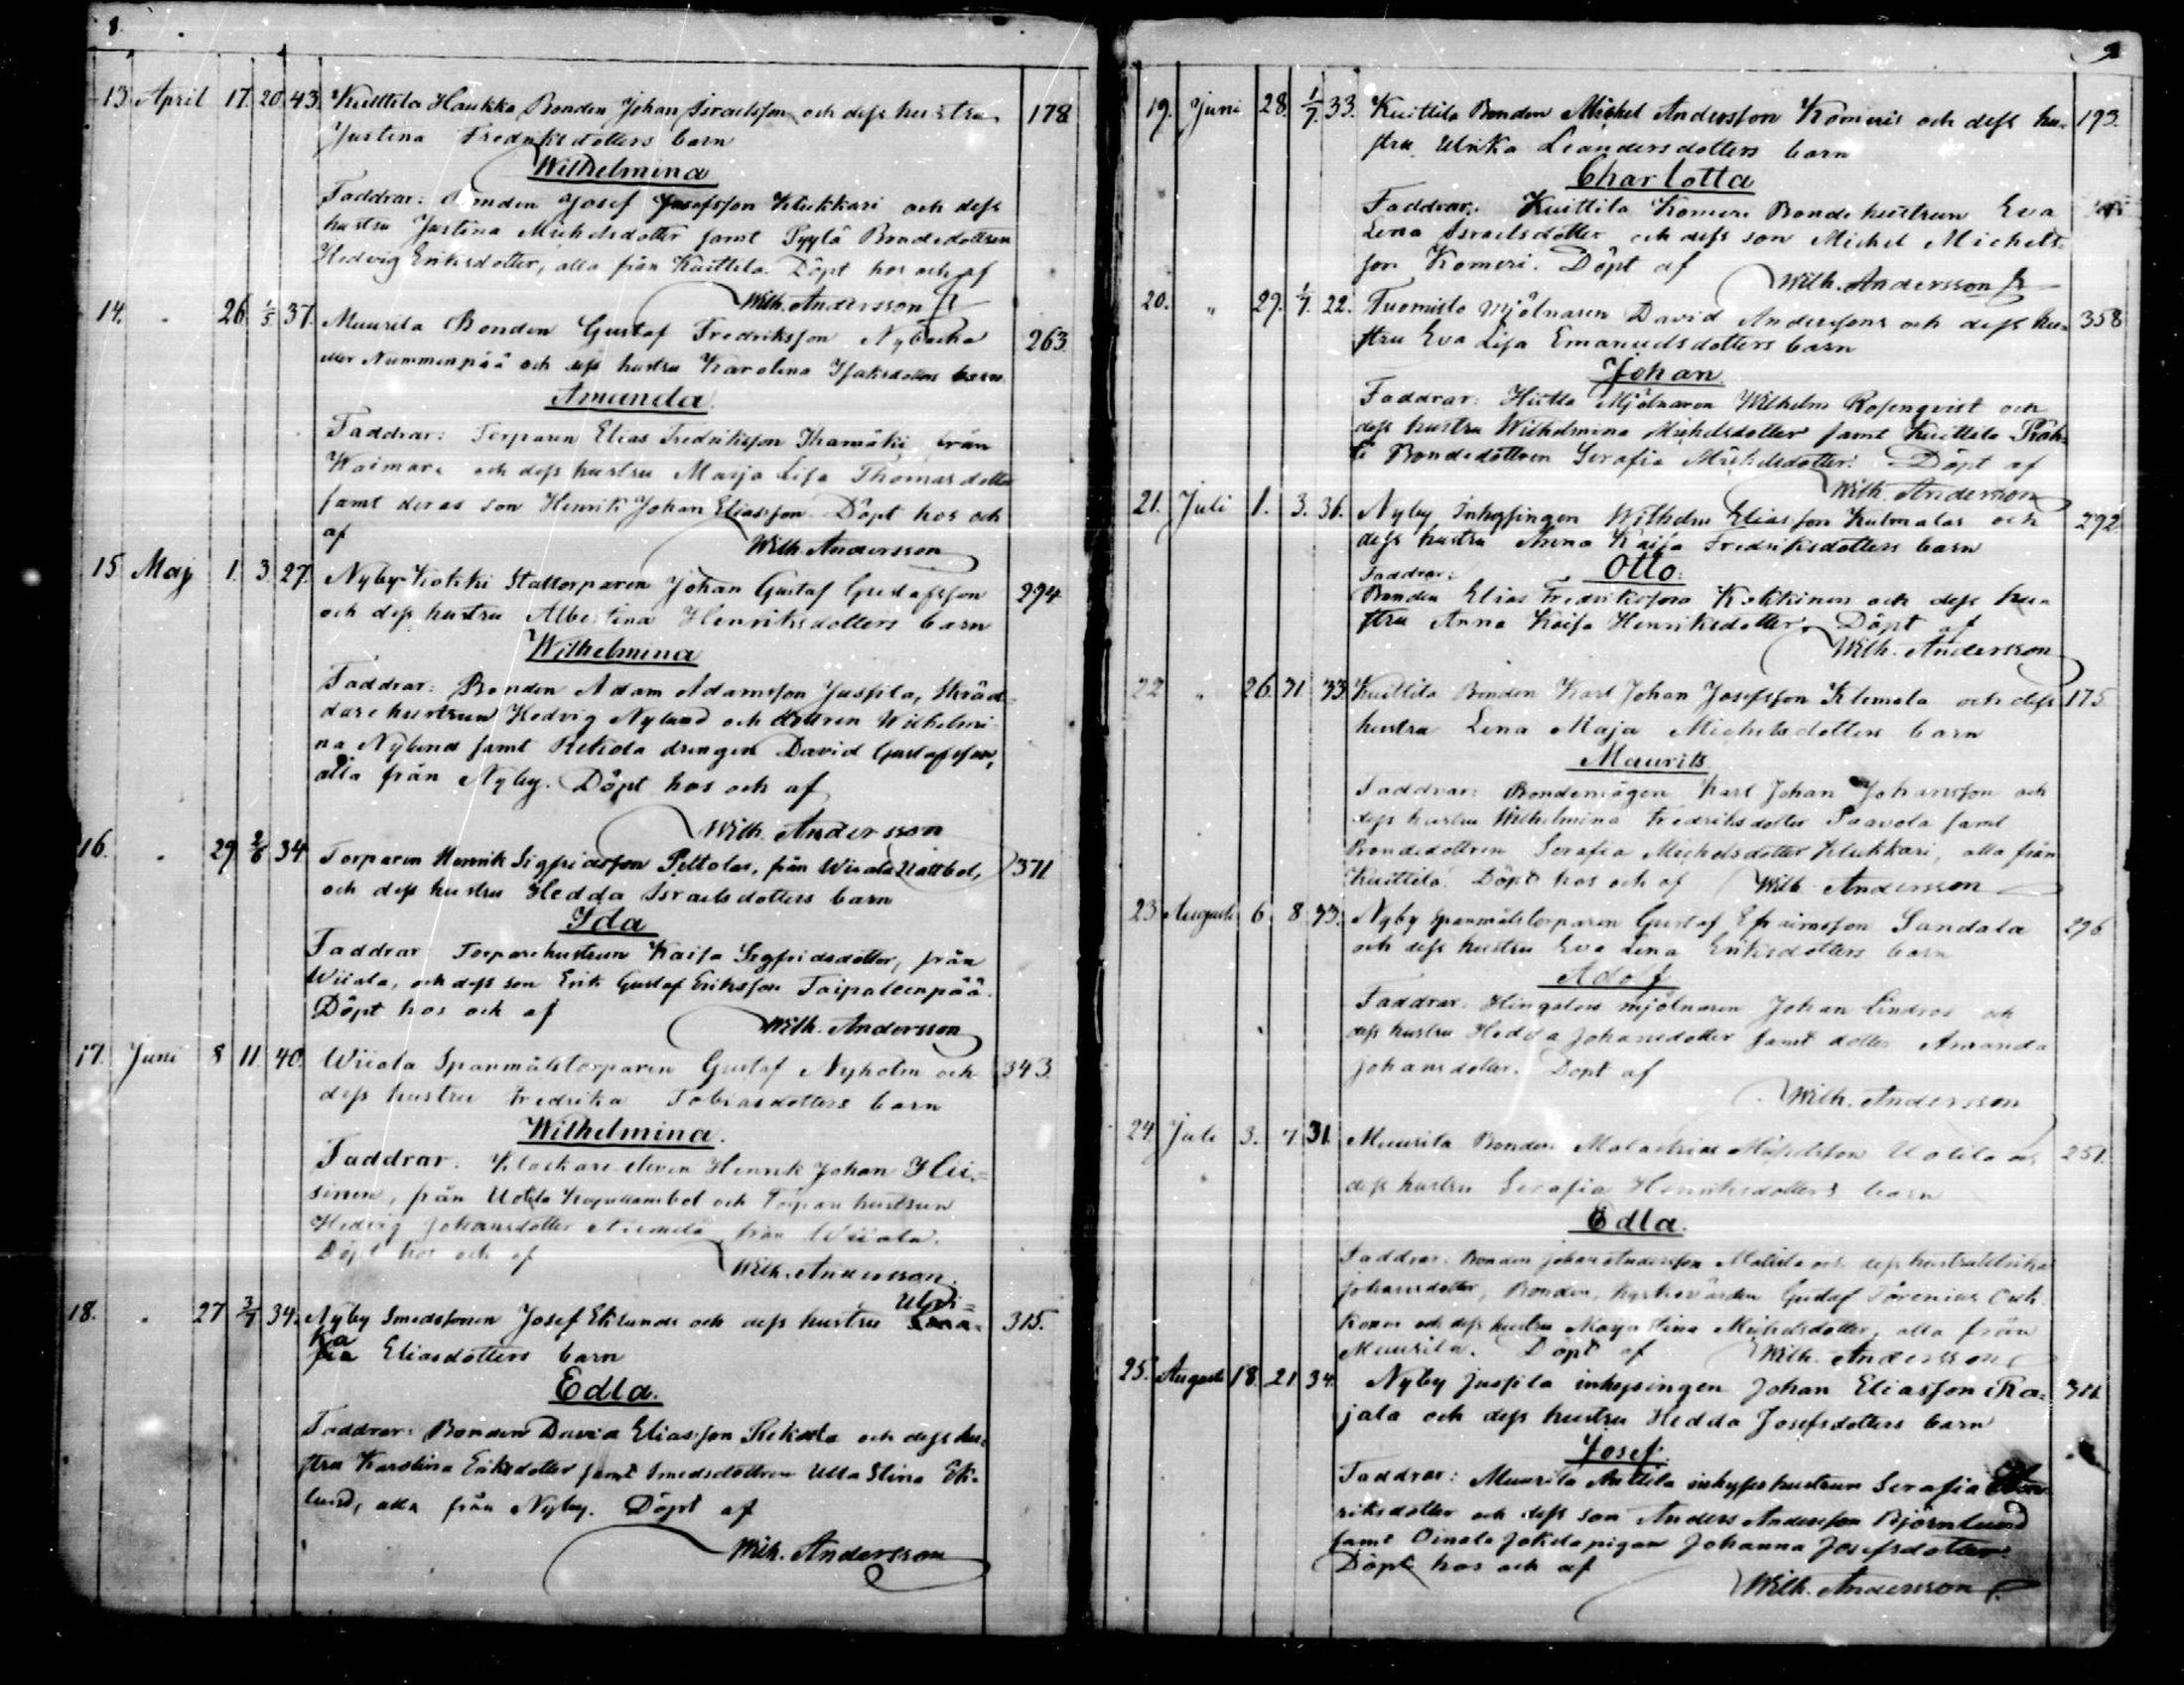 8.
13. April 17. 20. 43. Kuittila Haukka Bonden Johan Israelsson och dess hustru 178
Justina Fredriksdotters barn
Wilhelmina
Faddrar: Bonden Josef Josefsson Klukkari och dess
hustru Justina Michelsdotter samt Pyylä Bondedottren
Hedvig Eriksdotter, alla från Kuittila. Döpt hos och af
Wilh. Andersson
14. " 26 1/5 37. Muurila Bonden Gustaf Fredriksson Nybacka 263.
eller Nummenpää och dess hustru Karolina Isaksdotters barn
Amanda.
Faddrar: Torparen Elias Fredriksson Ihamäki från
Waimare och dess hustru Maija Lisa Thomasdotter
samt deras son Henrik Johan Eliasson. Döpt hos och
af
Wilh. Andersson
15 Maj 1. 3. 27. Nyby-Kokki Stattorparen Johan Gustaf Gustafsson 294
och dess hustru Albertina Henriksdotters barn
Wilhelmina
Faddrar: Bonden Adam Adamsson Jussila, Skräd-
darehustrun Hedvig Nylund och dottren Wilhelmi-
na Nylund samt Rekola drengen David Gustafsson,
alla från Nyby. Döpt hos och af
Wilh. Andersson
16. " 29 2/6 34 Torparen Henrik Sigfridsson Peltolas, från Wiiala Uottbol, 371
och dess hustru Hedda Israelsdotters barn
Ida
Faddrar Torparehustrun Kaisa Sigfridsdotter, från
Wiiala, och dess son Erik Gustaf Eriksson Taipaleenpää.
Döpt hos och af
Wilh. Andersson
17. Juni 8 11. 40. Wiiala Spanmålstorparen Gustaf Nyholm och 343.
dess hustru Fredrika Tobiasdotters barn
Wilhelmina.
Faddrar: Klockare eleven Henrik Johan Hii-
sinen, från Uotila Kapellansbol och Torparehustrun
Hedvig Johansdotter Niemelä från Wiiala.
Döpt hos och af
Wilh. Andersson.
Ulri-
18. " 27 3/7 34. Nyby Smedssonen Josef Eklunds och dess hustru 315.
ka Eliasdotters barn
Edla.
Faddrar: Bonden David Eliasson Rekola och dess hu-
stru Karolina Eriksdotter samt Smedsdottren Ulla Stina Ek-
lund, alla från Nyby. Döpt af
Wilh. Andersson
9
19. Juni 28. 1/7. 33. Kuittila Bonden Michel Andersson Komeris och dess hu- 193.
stru Ulrika Leandersdotters barn
Charlotta
Faddrar: Kuittila Komeri Bondehustrun Eva
Lena Israelsdotter och dess son Michel Michels-
son Komeri. Döpt af
Wilh. Andersson
20. " 29. 1/7. 22. Tuomisto Mjölnaren David Anderssons och dess hu- 358
stru Eva Lisa Emanuelsdotters barn
Johan
Faddrar: Mjölnaren Wilhelm Rosenqvist och
dess hustru Wilhelmina Michelsdotter samt Kuittila
Bondedottren Serafia Michelsdotter. Döpt af
Wilh. Andersson
21. Juli 1. 3. 36. Nyby Inhysingen Wilhelm Eliasson Kulmalas och 292
dess hustru Anna Kaisa Fredriksdotters barn
Faddrar: Otto.
Bonden Elias Fredriksson Kokkinen och dess hu-
stru Anna Kaisa Henriksdotter. Döpt af
Wilh. Andersson
22 " 26. 31 33. Kuittila Bonden Karl Johan Josefsson Klemola och dess 175
hustru Lena Maja Michelsdotters barn
Maurits
Faddrar: Bondemågen Karl Johan Johansson och
dess hustru Wilhelmina Fredriksdotter Paavola samt
Bondedottren Serafia Michelsdotter Klukkari, alla från
Kuittila. Döpt hos och af Wilh. Andersson
23 Augusti 6. 8 33. Nyby Spanmålstorparen Gustaf Efraimsson Sandala 296
och dess hustru Eva Lena Eriksdotters barn
Adolf
Faddrar: mjölnaren Johan Lindros och
dess hustru Hedda Johansdotter samt dotter Amanda
Johansdotter. Döpt af
Wilh. Andersson
24. Juli 3. 7. 31. Muurila Bonden Malachias Uotila och 251.
dess hustru Serafia Henriksdotters barn
Edla.
Faddrar: Bonden Johan Andersson Mattila och dess hustru Ulrika
Johansdotter, Bonden, Kyrkovärden Gustaf
och dess hustru Maja Stina Michelsdotter, alla från
Muurila. Döpt af Wilh. Andersson
25. Augusti 18. 21 34. Nyby Jussila inhysingen Johan Eliasson Ra-
jala och dess hustru Hedda Josefsdotters barn
Josef.
Faddrar: Muurila Anttila inhyseshustrun Serafia Hen-
riksdotter och dess son Anders Andersson Björnlund
samt Oinala Jokela pigan Johanna Josefsdotter
Döpt hos och af
Wilh. Andersson